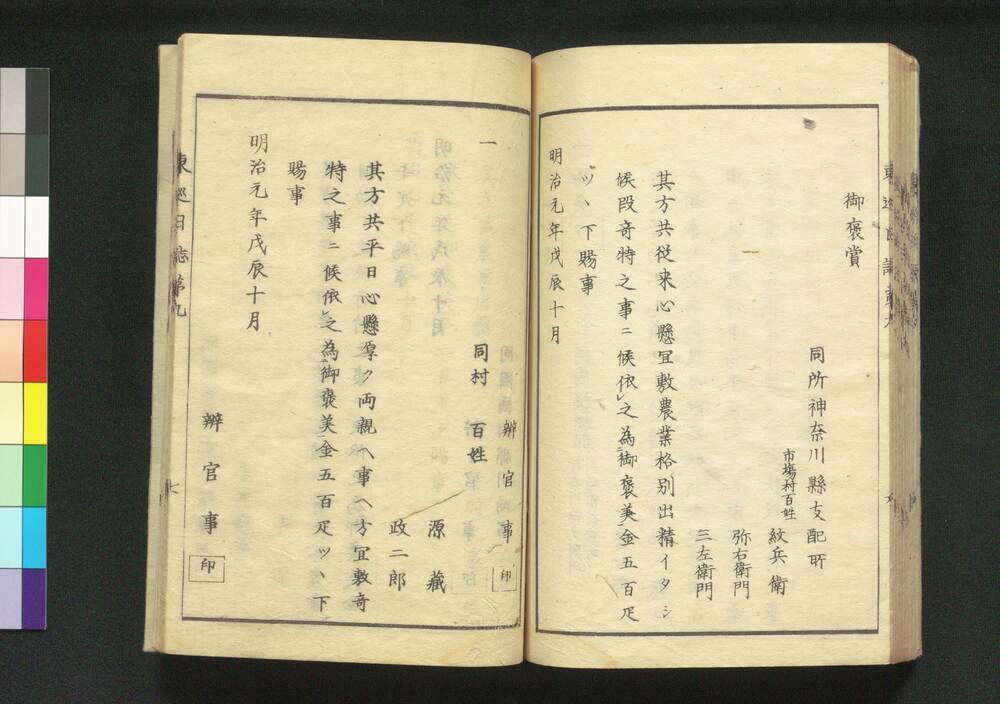 御褒賞
同所神奈川縣支配所
市場村百姓
紋兵衛
弥右衛門
三左衛門
其方共従来心懸冝敷農業格別出精イタシ
候段奇特之事ニ候依之為御褒美金五百疋
ツヽ下賜事
明治元年戊辰十月
辨官事 印
一
同村 百姓
源藏
政二郎
其方共平日心懸厚ク両親ヘ事ヘ方冝敷奇
特之事ニ候依レ之為ニ御褒美ニ金五百疋ツヽ下
賜事
明治元年戊辰十月
辨官事 印
東巡日誌第九
七